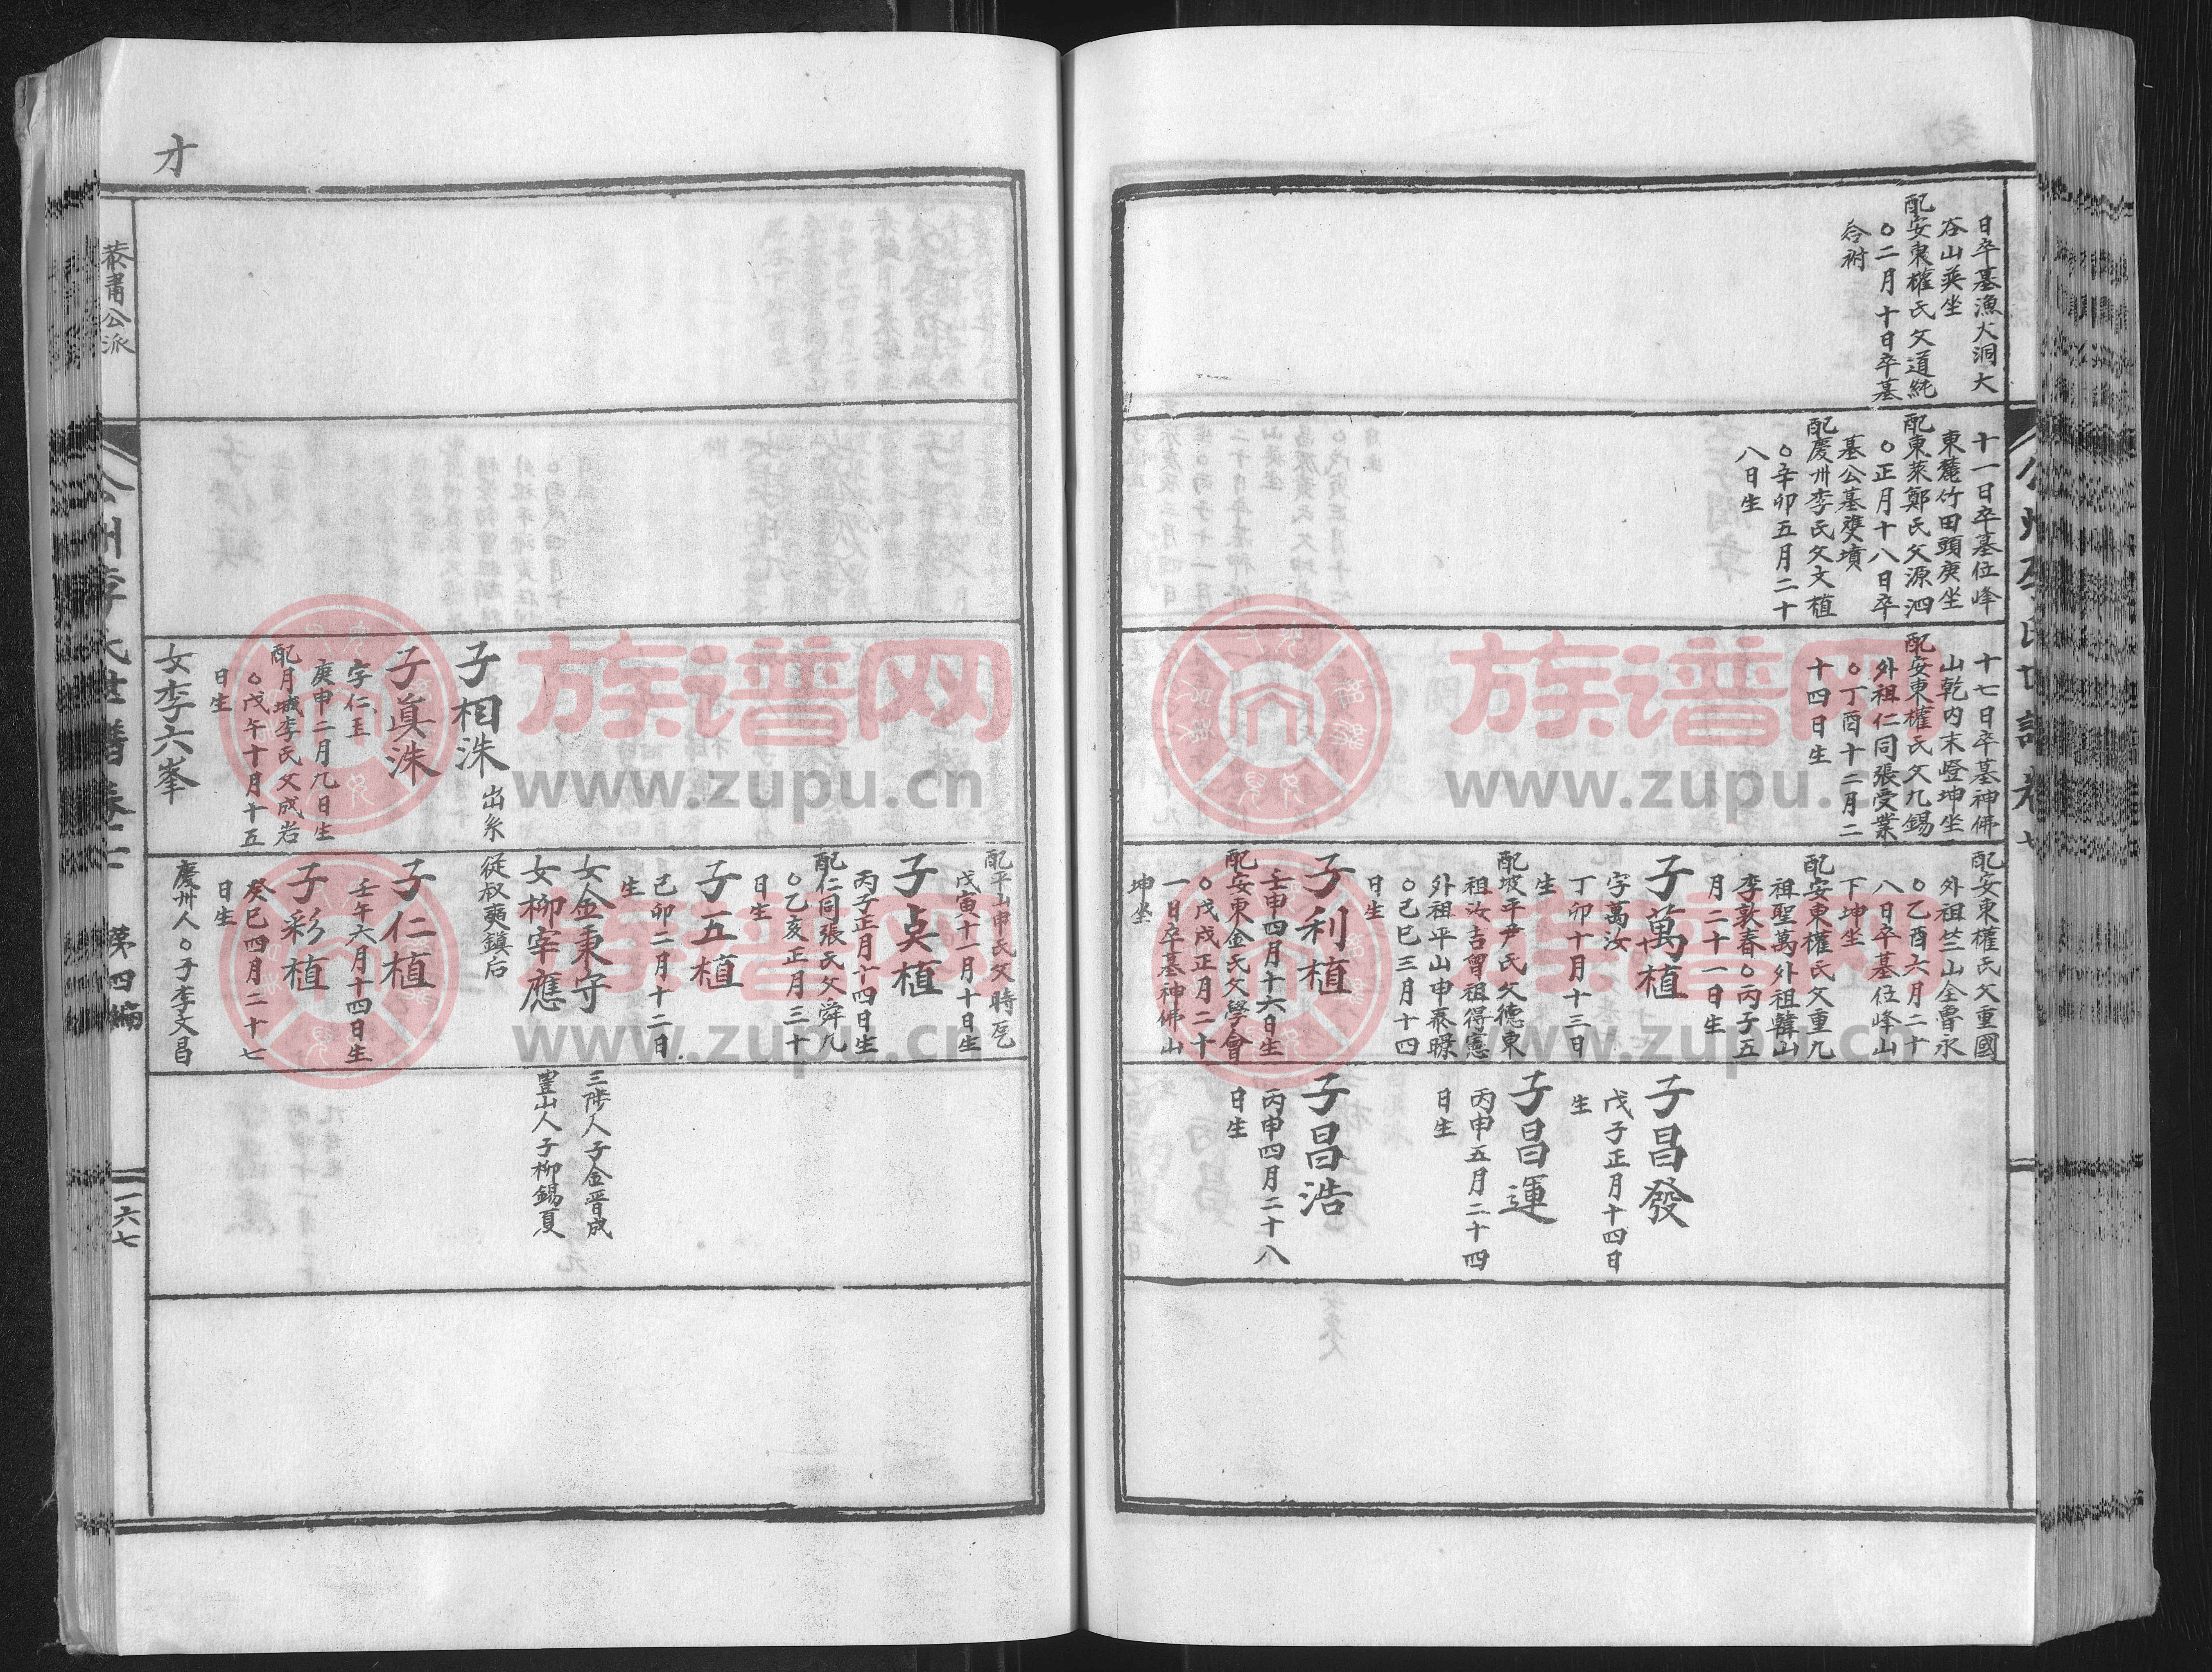 日卒墓漁火洞大
谷山巽坐
配安東權氏父道純
○二月十日卒墓
合祔
十一日卒墓位峰
東麓竹田頭庚坐
配東萊鄭氏父源泗
○正月十八日卒
墓公墓雙墳
配慶州李氏父文植
○辛卯五月二十
八日生
十七日卒墓神佛
山乾內末嶝坤坐
配安東權氏父九錫
外祖仁同張受業
○丁酉十二月二
十四日生
配安東權氏父重國
外祖竺山全魯永
○乙酉六月二十
八日卒墓位峰山
下坤坐
配安東權氏父重九
祖聖萬外祖韓山
李敦春○丙子五
月二十一日生
子萬植
字萬汝
丁卯十月十三日
生
配坡平尹氏父德東
祖汝吉曾祖得憲
外祖平山申泰
○己巳三月十四
日生
子利植
壬申四月十六日生
配安東金氏父學會
○戊戌正月二十
一日卒墓神佛山
坤坐
子昌發
戊子正月十四日
生
子昌運
丙申五月二十四
日生
子昌浩
丙申四月二十八
日生
才
恭肅公派
公州李氏世譜卷
第四編
一六七
子相洙
出系
子眞洙
字仁玉
庚申二月九日生
配月城李氏父成岩
○戊午十月十五
日生
女李六峯
配平山申氏父時
戊寅十一月十日生
子点植
丙子正月十四日生
配仁同張氏父舜九
○乙亥正月三十
日生
子五植
己卯二月十二日
生
女金秉守
女柳宰應
從叔奭鎭后
子仁植
壬午六月十四日生
子彩植
癸巳四月二十七
日生
慶州人○子李文昌
三陟人子金晋成
豐山人子柳錫夏
族谱网
www.zupu.cn
族谱网
www.zupu.cn
族谱网
www.zupu.cn
族谱网
www.zupu.cn